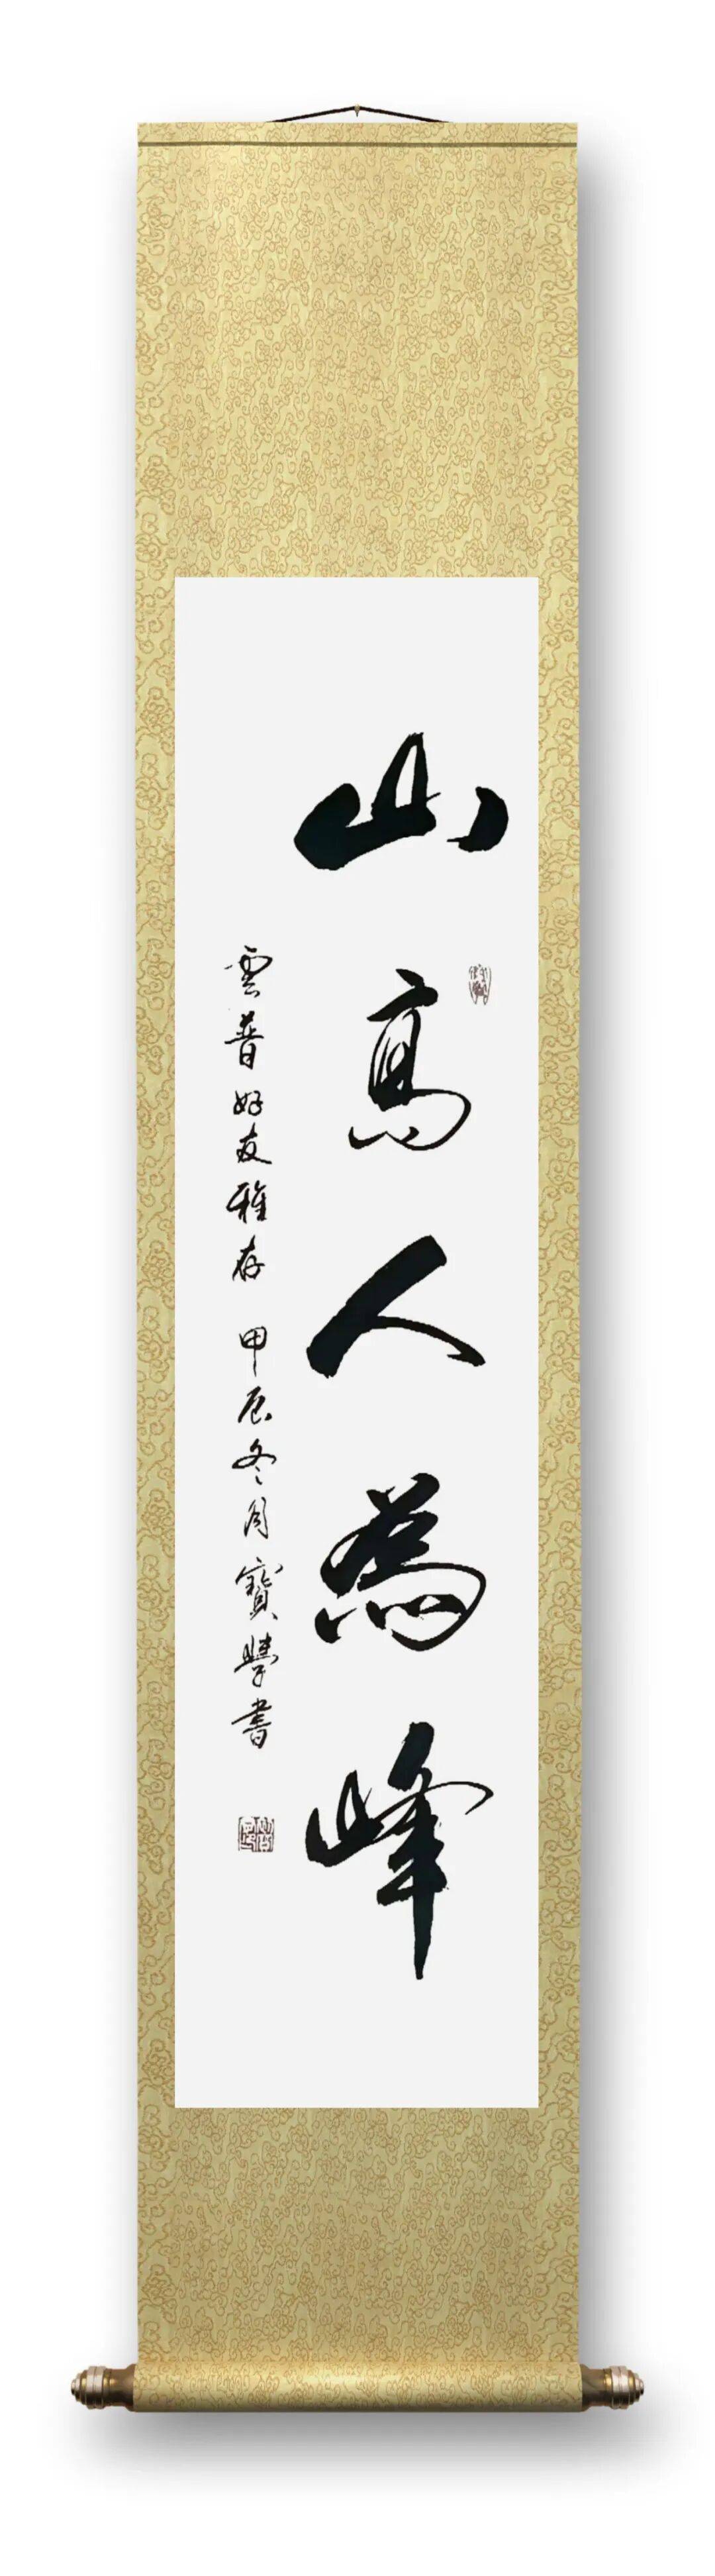 山高人為峰
雲普好友雅存 甲辰冬月寶學書